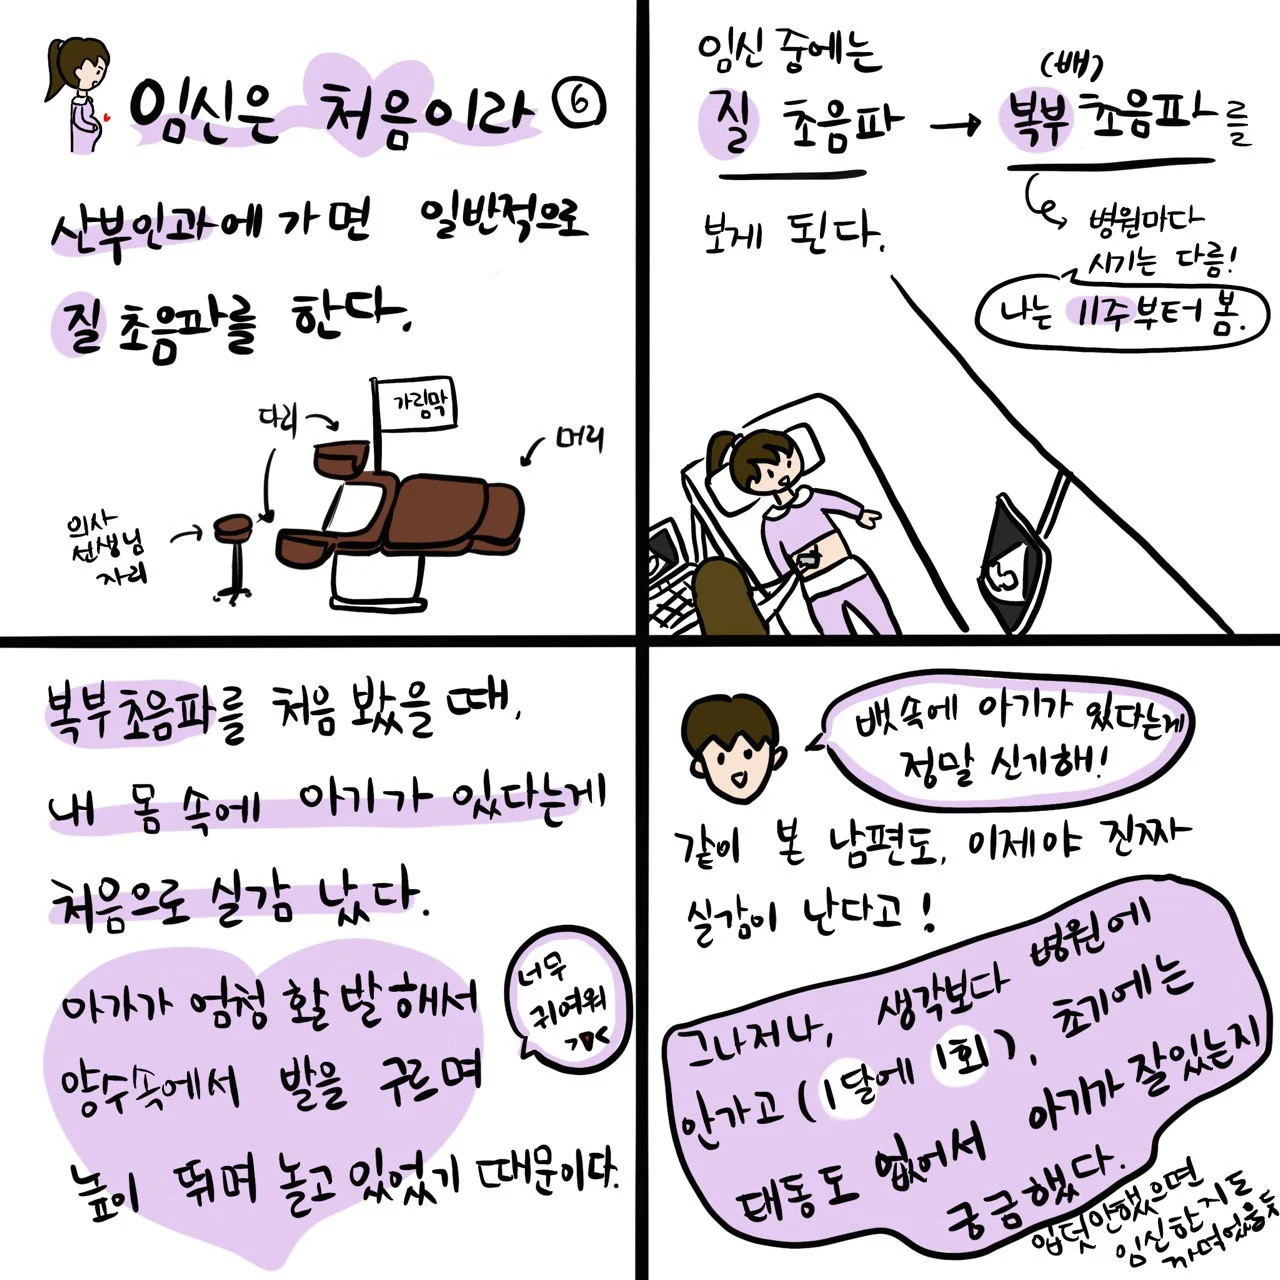 임신은 처음이라 ⑥
산부인과에 가면 일반적으로
질 초음파를 한다.
다리
가림막
머리
의사
선생님
자리
임신 중에는
질 초음파 → 복부 초음파를
(배)
보게 된다.
병원마다
시기는 다름!
나는 11주부터 봄.
복부초음파를 처음 봤을 때,
내 몸 속에 아기가 있다는게
처음으로 실감 났다.
아가가 엄청 활발해서
양수속에서 발을 구르며
높이 뛰며 놀고 있었기 때문이다.
너무
귀여워
뱃속에 아기가 있다는게
정말 신기해!
같이 본 남편도, 이제야 진짜
실감이 난다고!
그나저나, 생각보다 병원에
안가고 (1달에 1회), 초기에는
태동도 없어서 아기가 잘있는지
궁금했다.
입덧안했으면
임신한지도
까먹었을듯